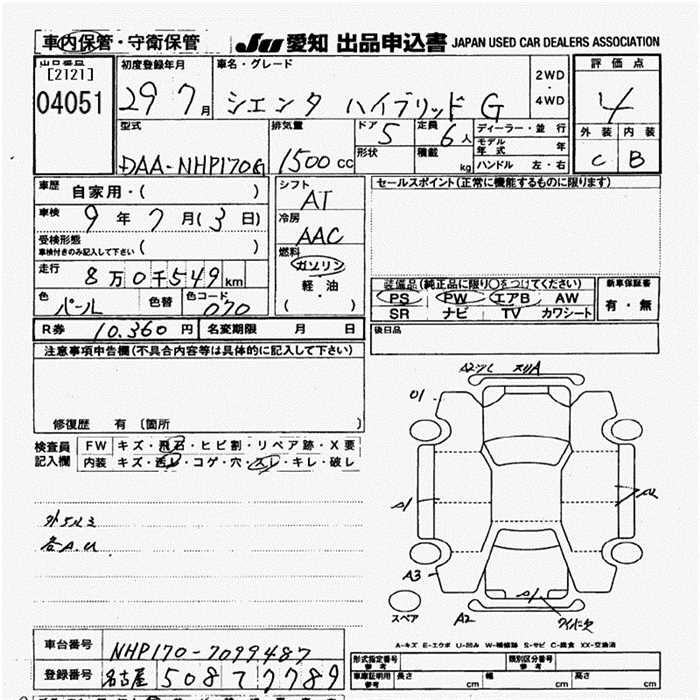 車内保管・守衛保管 JU 愛知 出品申込書 JAPAN USED CAR DEALERS ASSOCIATION
出品番号 初度登録年月 車名・グレード 2WD・4WD 評価点
[2121]
04051 29 7月 シエンタ ハイブリッド G 4
型式 排気量 ドア 5 定員 6人 ディーラー・並行 外装 内装
DAA-NHP170G 1500cc 形状 積載 kg モデル年式 年 C B
ハンドル 左・右
車歴 自家用・( ) シフト AT セールスポイント(正常に機能するものに限ります)
車検 9年7月(3日) 冷房 AAC
受検形態 車検付きのみ記入して下さい ( ) 燃料
走行 8万0千549km ガソリン 軽・油 ( )
装備品(純正品に限り○をつけてください) 新車保証書
色 パール 色替 色コード 070 PS PW エアB AW 有・無
SR ナビ TV カワシート
R券 10,360円 名変期限 月 日 後日品
注意事項申告欄(不具合内容等は具体的に記入して下さい)
修復歴 有 〔箇所 〕
検査員記入欄 FW キズ・飛石・ヒビ割・リペア跡・X要
内装 キズ・汚レ・コゲ・穴・スレ・キレ・破レ
各A.U
01
A1
A3
A2
A1
A-キズ E-エクボ U-凹み W-補修跡 S-サビ C-腐食 XX-交換済
スペア
車台番号 NHP170-7099487
登録番号 名古屋 508 7789
形式指定番号 参考 類別区分番号 参考
車庫証明用 参考 長さ cm 幅 cm 高さ cm